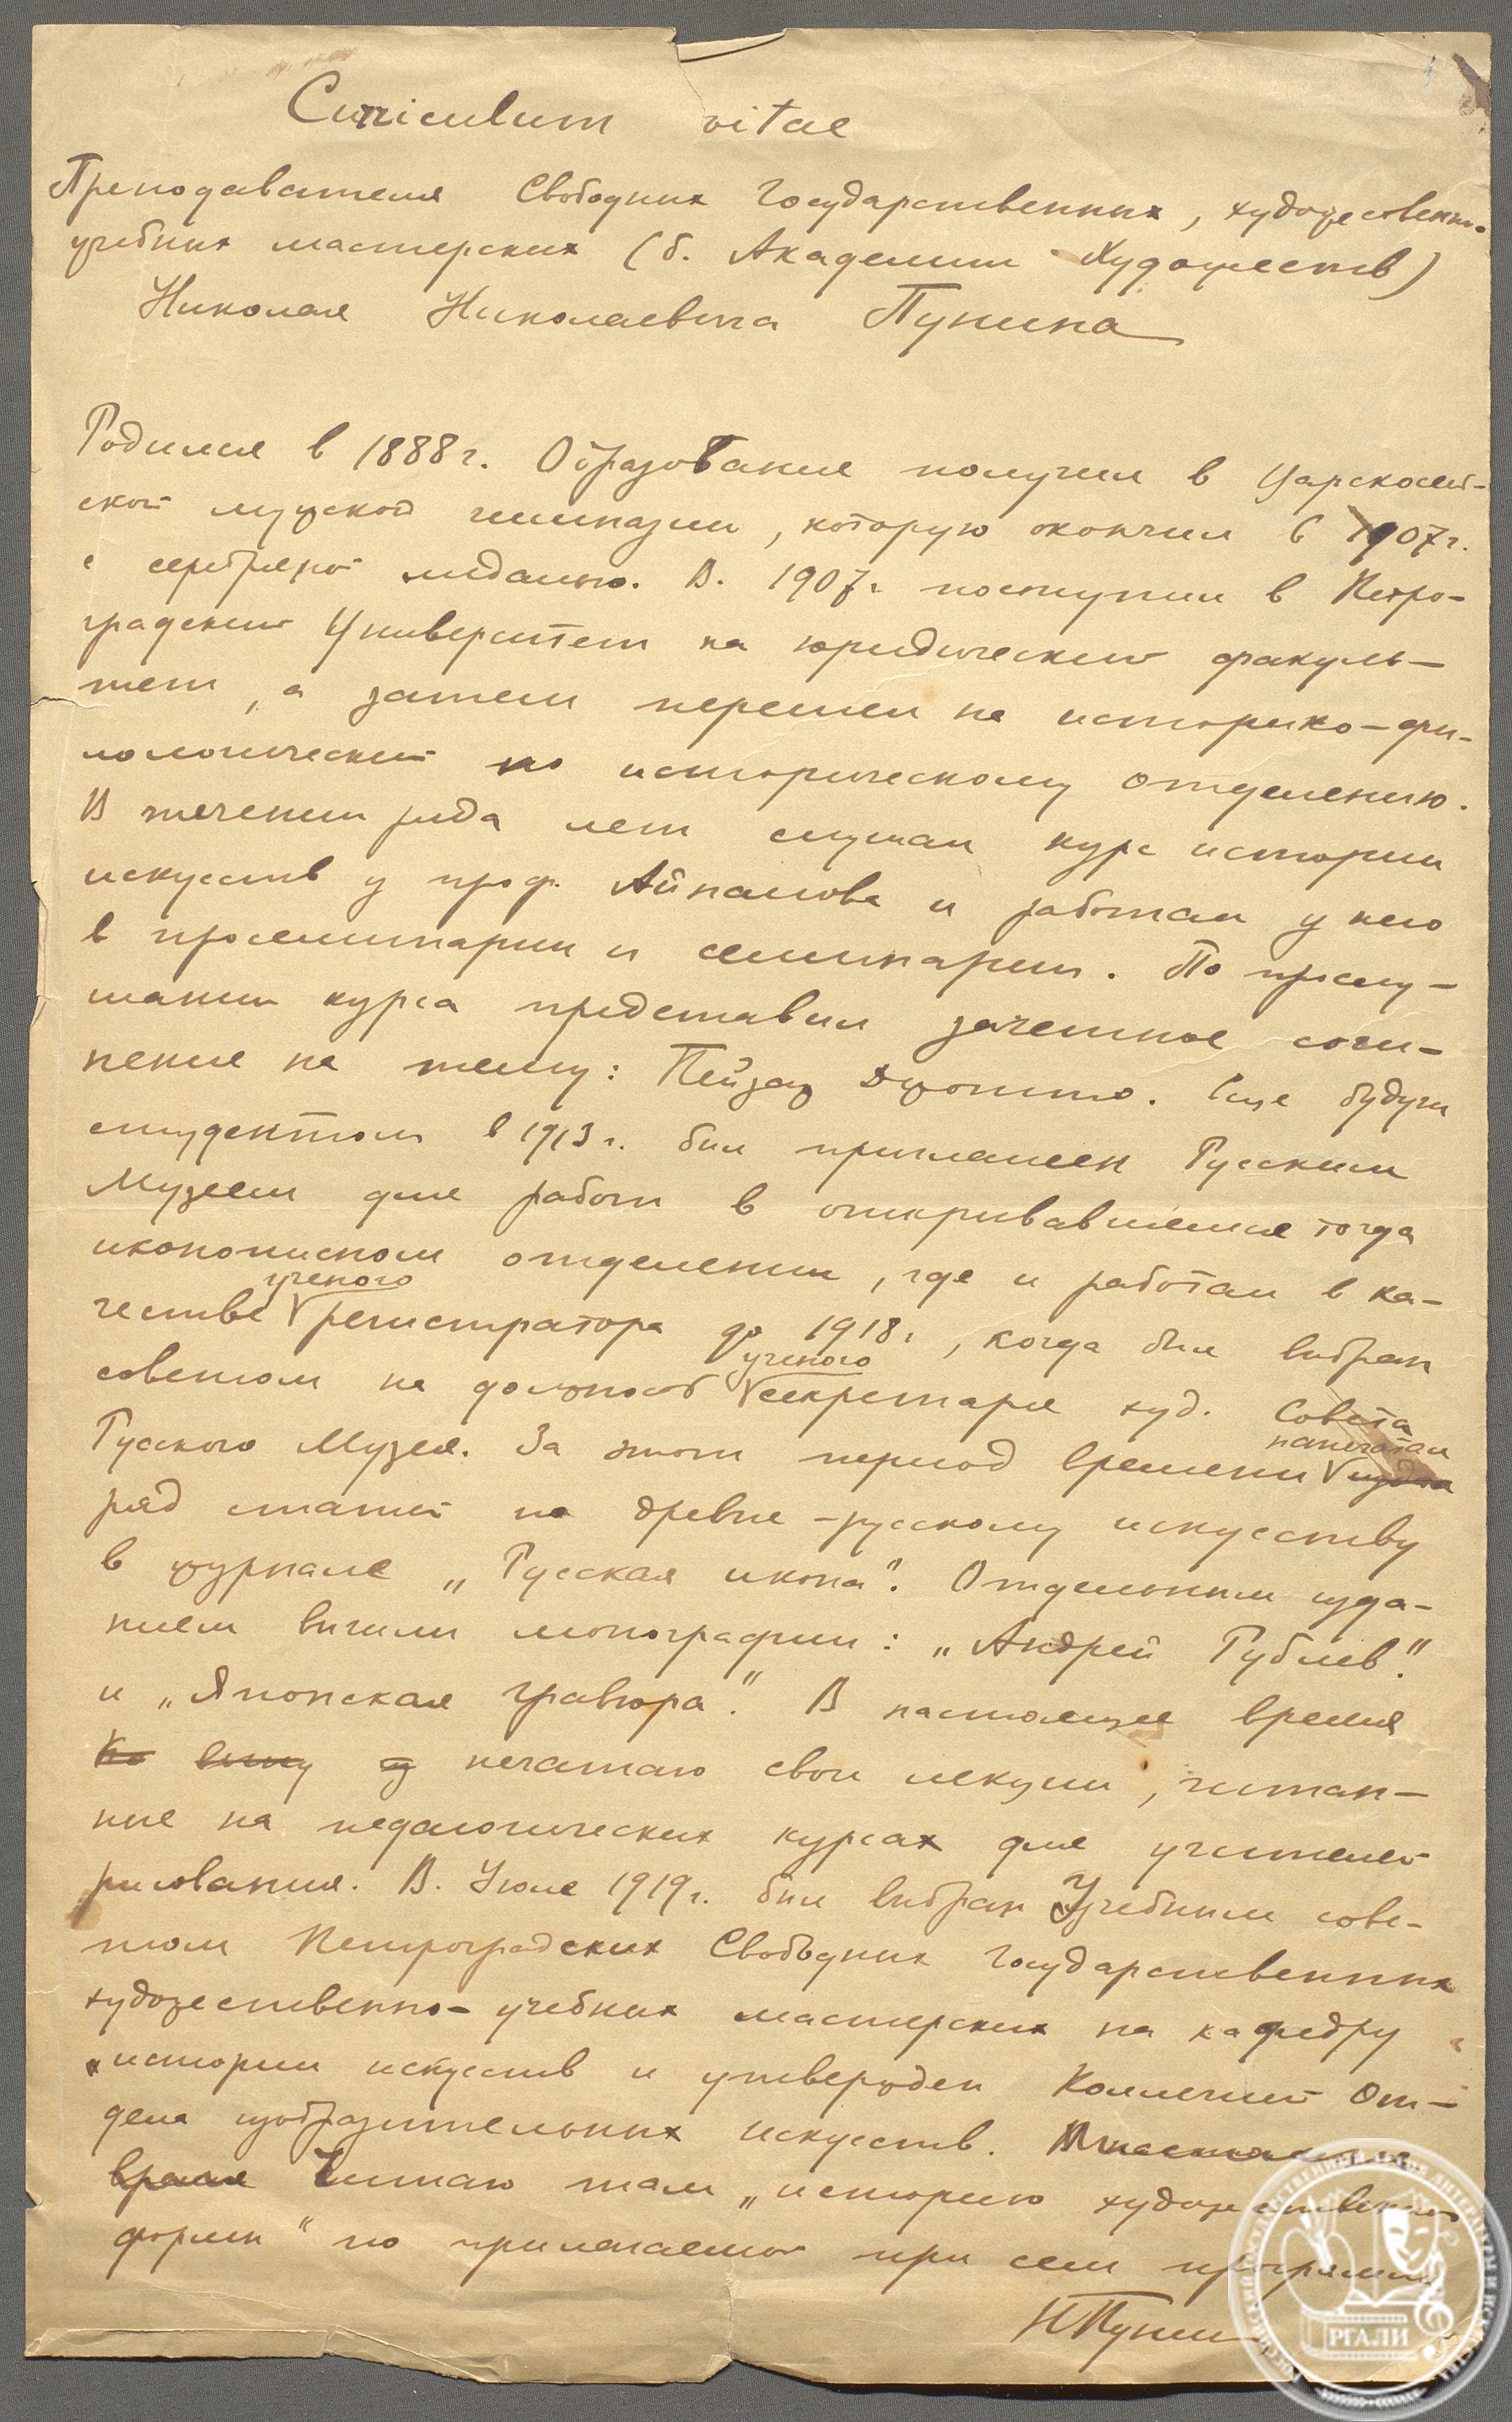 Curriculum vitae
Преподавателя Свободных Государственных, художественно-
учебных мастерских (б. Академии Художеств)
Николая Николаевича Пунина
Родился в 1888 г. Образование получил в Царскосель-
ской мужской гимназии, которую окончил в 1907 г.
с серебряной медалью. В. 1907 г. поступил в Петро-
градский Университет на юридический факуль-
тет, а затем перешел на историко-фи-
лологический по историческому отделению.
В течении ряда лет слушал курс истории
искусств у проф. Айналова и работал у него
в просеминарии и семинарии. По прослу-
шании курса представил зачетное сочи-
нение на тему: Пейзаж Джотто. Еще будучи
студентом в 1913 г. был приглашен Русским
Музеем для работ в открывавшемся тогда
иконописном отделении, где и работал в ка-
ученого
честве регистратора до 1918 г., когда был выбран
ученого
советом на должность секретаря худ. Совета
напечатал
Русского Музея. За этот период времени
ряд статей по древне-русскому искусству
в журнале „Русская икона". Отдельным изда-
нием вышли монографии: „Андрей Рублев".
и „Японская гравюра". В настоящее время
печатаю свои лекции, читан-
ные на педагогических курсах для учителей
рисования. В. Июле 1919 г. был выбран Учебным сове-
том Петроградских Свободных Государственных
художественно-учебных мастерских на кафедру
истории искусств и утвержден Коллегией От-
дела изобразительных искусств. В настоящее
время Читаю там „историю художественной
формы" по прилагаемой при сем программе
Н Пунин
РГАЛИ